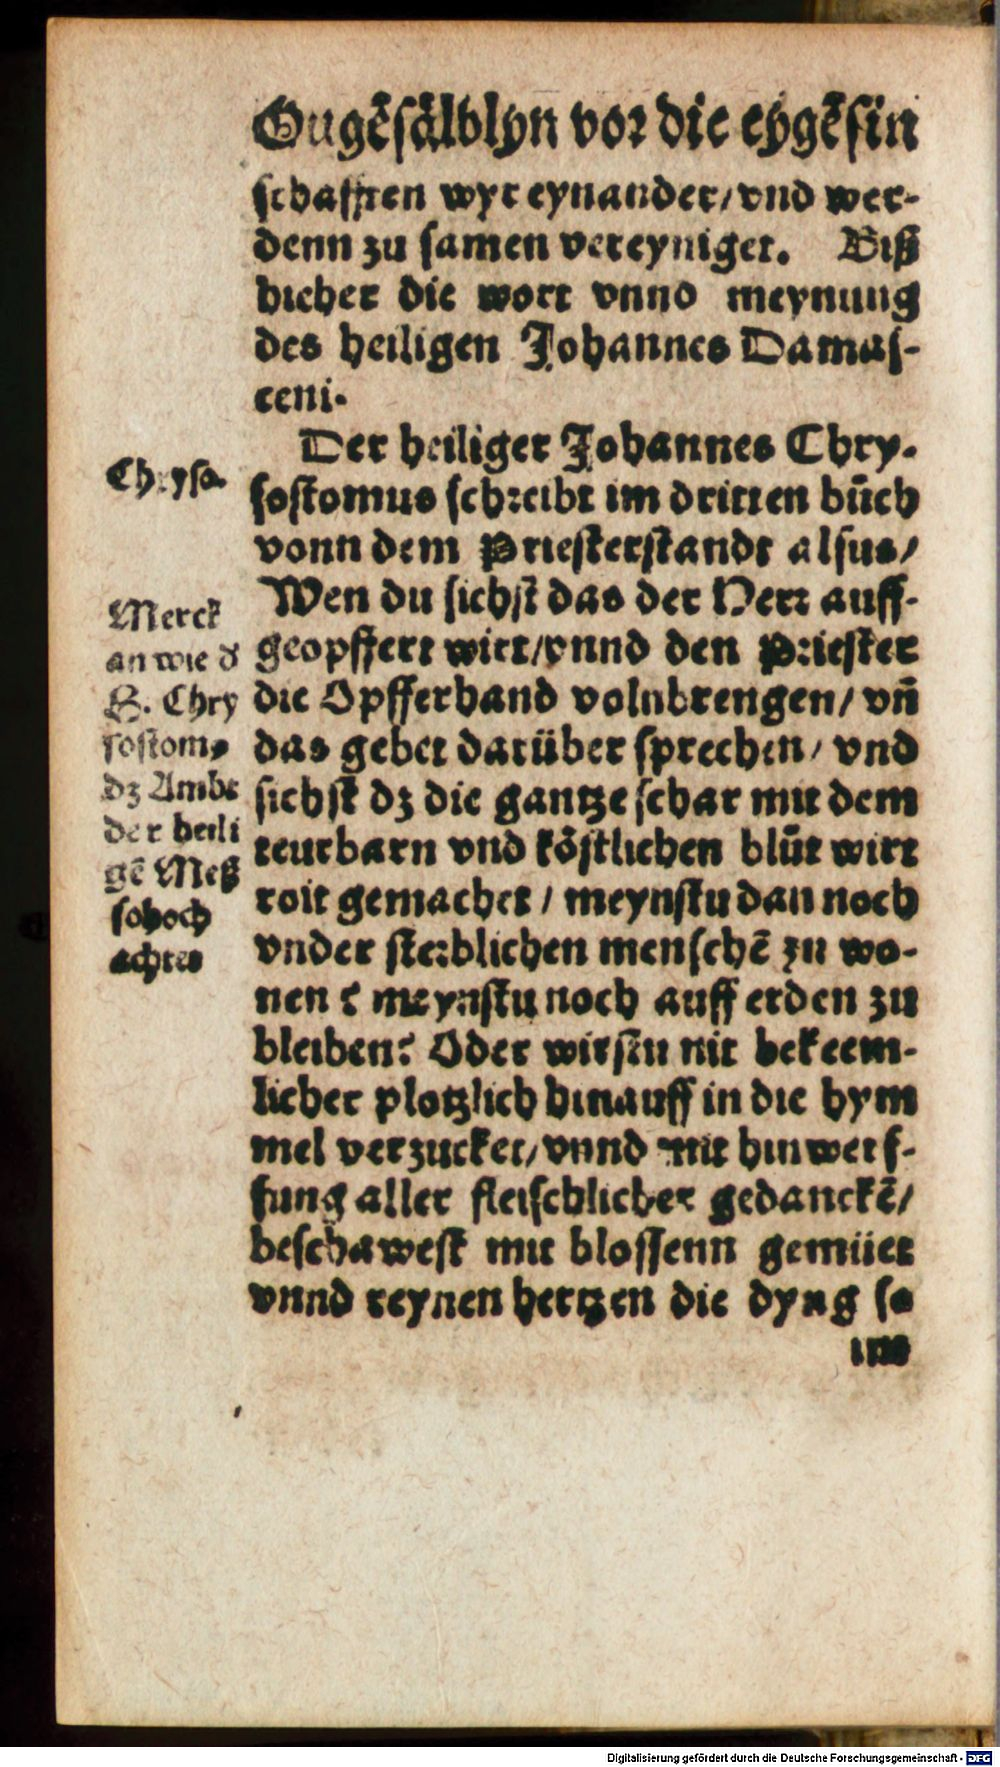 Ougẽsälblyn vor die eygẽsin
schafften wyr eynander/vnd wer-
denn zu samen vereyniget. Biß
hieher die wort vnnd meynung
des heiligen Johannes Damas-
ceni.
Der heiliger Johannes Chry-
Chryso.
sostomus schreibt im dritten bůch
vonn dem Priesterstandt alsus/
Wen du sichst das der Herr auff-
geopffert wirt/vnnd den Priester
die Opfferhand volnbrengen/ vñ
das gebet darüber sprechen/ vnd
sichst dz die gantze schar mit dem
teurbarn vnd köstlichen blůt wirt
roit gemachet / meynstu dan noch
vnder sterblichen menschẽ zu wo-
nen? meynstu noch auff erden zu
bleiben? Oder wirstu nit bekeem-
licher plotzlich hinauff in die hym
mel verzucket/vnnd mit hinwerf-
fung aller fleischlicher gedanckẽ/
beschawest mit blossenn gemüet
vnnd reynen hertzen die dyng so
Merck
an wie d
S. Chry
sostomꝰ
dz Ambt
der heili
gẽ Meß
so hoch
achtet
ims
Digitalisierung gefördert durch die Deutsche Forschungsgemeinschaft - DFG